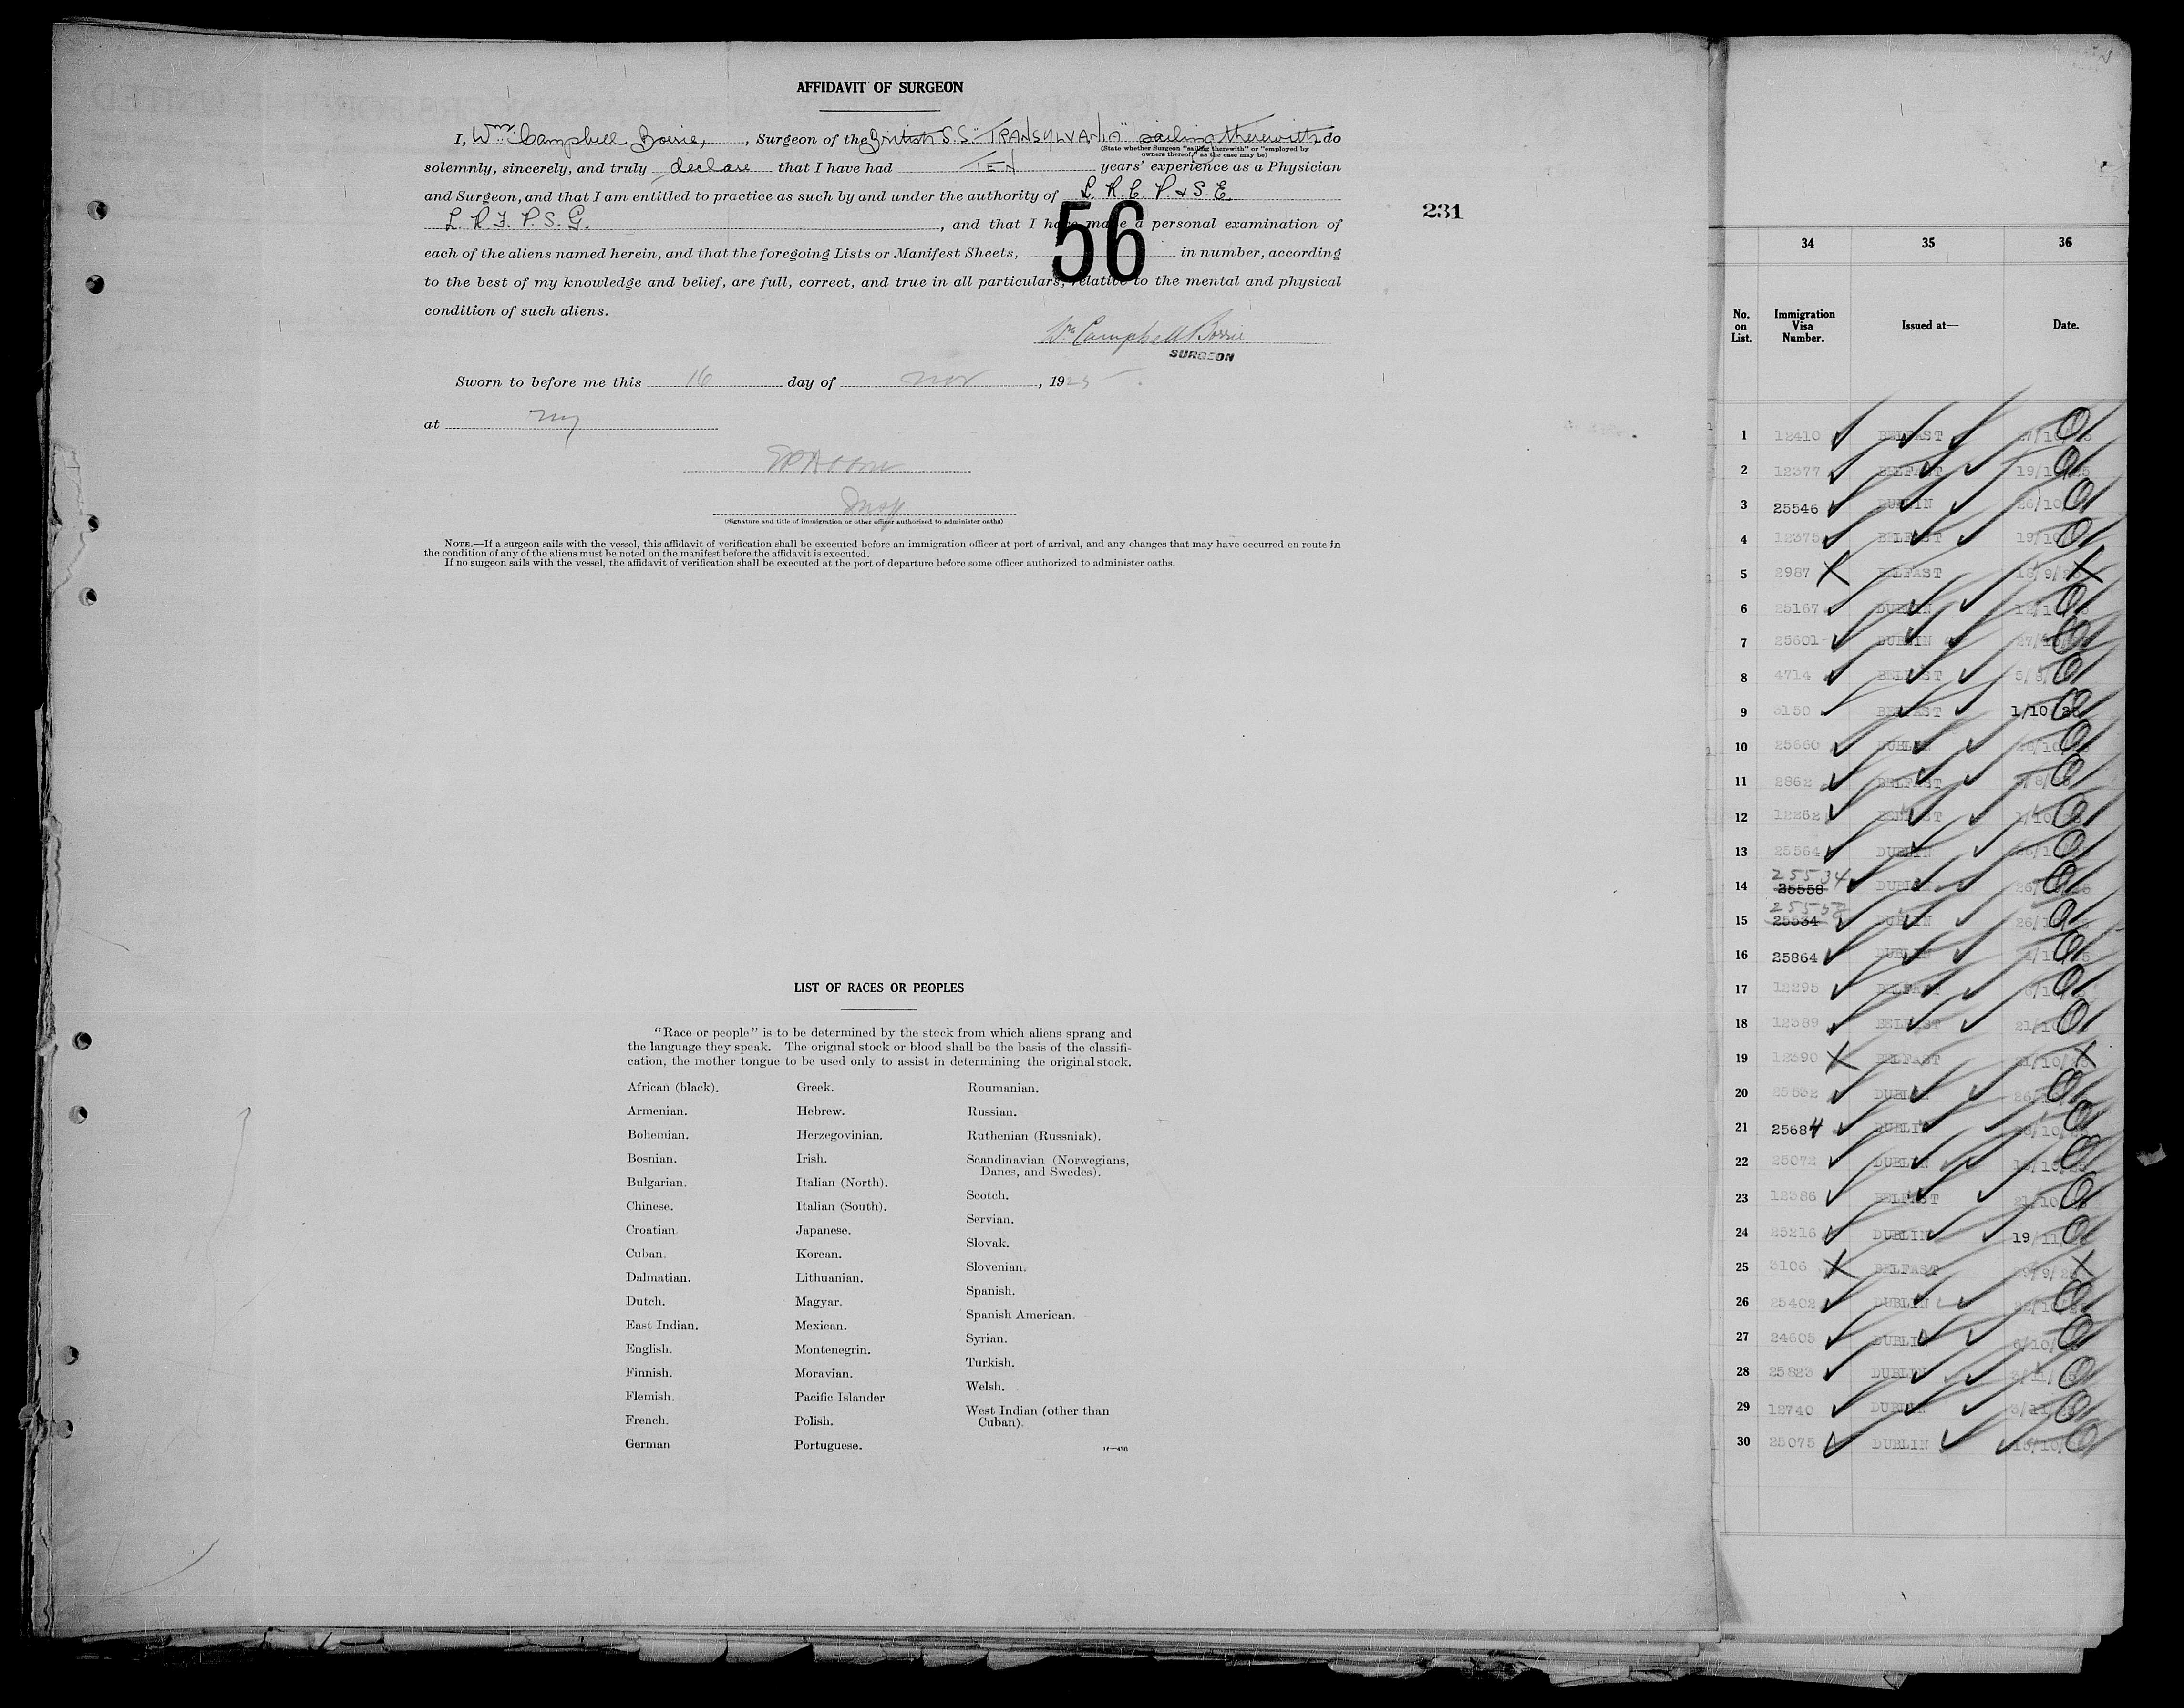 AFFIDAVIT OF SURGEON
I, Wm. Campbell Borrie, , Surgeon of the British S.S. "TRANSYLVANIA" sailing therewith do
(State whether Surgeon "sailing therewith" or "employed by
owners thereof," as the case may be)
solemnly, sincerely, and truly declare that I have had TEN years' experience as a Physician
and Surgeon, and that I am entitled to practice as such by and under the authority of L.R.C.P. & S.E.
L.R.F.P.S.G. , and that I have made a personal examination of
each of the aliens named herein, and that the foregoing Lists or Manifest Sheets, 56 in number, according
to the best of my knowledge and belief, are full, correct, and true in all particulars, relative to the mental and physical
condition of such aliens.
Wm Campbell Borrie
SURGEON
Sworn to before me this 16 day of nov , 1925
at ny
Insp
(Signature and title of immigration or other officer authorized to administer oaths)
NOTE.—If a surgeon sails with the vessel, this affidavit of verification shall be executed before an immigration officer at port of arrival, and any changes that may have occurred en route in
the condition of any of the aliens must be noted on the manifest before the affidavit is executed.
If no surgeon sails with the vessel, the affidavit of verification shall be executed at the port of departure before some officer authorized to administer oaths.
231
LIST OF RACES OR PEOPLES
"Race or people" is to be determined by the stock from which aliens sprang and
the language they speak. The original stock or blood shall be the basis of the classifi-
cation, the mother tongue to be used only to assist in determining the original stock.
African (black).
Armenian.
Bohemian.
Bosnian.
Bulgarian.
Chinese.
Croatian.
Cuban.
Dalmatian.
Dutch.
East Indian.
English.
Finnish.
Flemish.
French.
German
Greek.
Hebrew.
Herzegovinian.
Irish.
Italian (North).
Italian (South).
Japanese.
Korean.
Lithuanian.
Magyar.
Mexican.
Montenegrin.
Moravian.
Pacific Islander
Polish.
Portuguese.
Roumanian.
Russian.
Ruthenian (Russniak).
Scandinavian (Norwegians,
Danes, and Swedes).
Scotch.
Servian.
Slovak.
Slovenian.
Spanish.
Spanish American.
Syrian.
Turkish.
Welsh.
West Indian (other than
Cuban).
34 35 36
No. on List. Immigration Visa Number. Issued at— Date.
1 12410 BELFAST 27/10/25
2 12377 BELFAST 19/10/25
3 25546 DUBLIN 26/10
4 12375 BELFAST 19/10
5 2987 BELFAST 16/9/25
6 25167 DUBLIN 12/10
7 25601 DUBLIN 27/10
8 4714 BELFAST 5/8
9 3150 BELFAST 1/10/25
10 25660 DUBLIN
11 2862 BELFAST
12 12262 BELFAST 1/10
13 25564 DUBLIN
14 25534 25558 DUBLIN 26/10/25
15 25558 25534 DUBLIN 26/10
16 25864 DUBLIN
17 12295 BELFAST
18 12389 BELFAST 21/10
19 12390 BELFAST 21/10
20 25532 DUBLIN 26
21 25684 DUBLIN
22 25072 DUBLIN
23 12386 BELFAST 21/10
24 25216 DUBLIN 19/11
25 3106 BELFAST 29/9/25
26 25402 DUBLIN
27 24605 DUBLIN 6/10/25
28 25823 DUBLIN
29 12740 DUBLIN 3/11
30 25075 DUBLIN